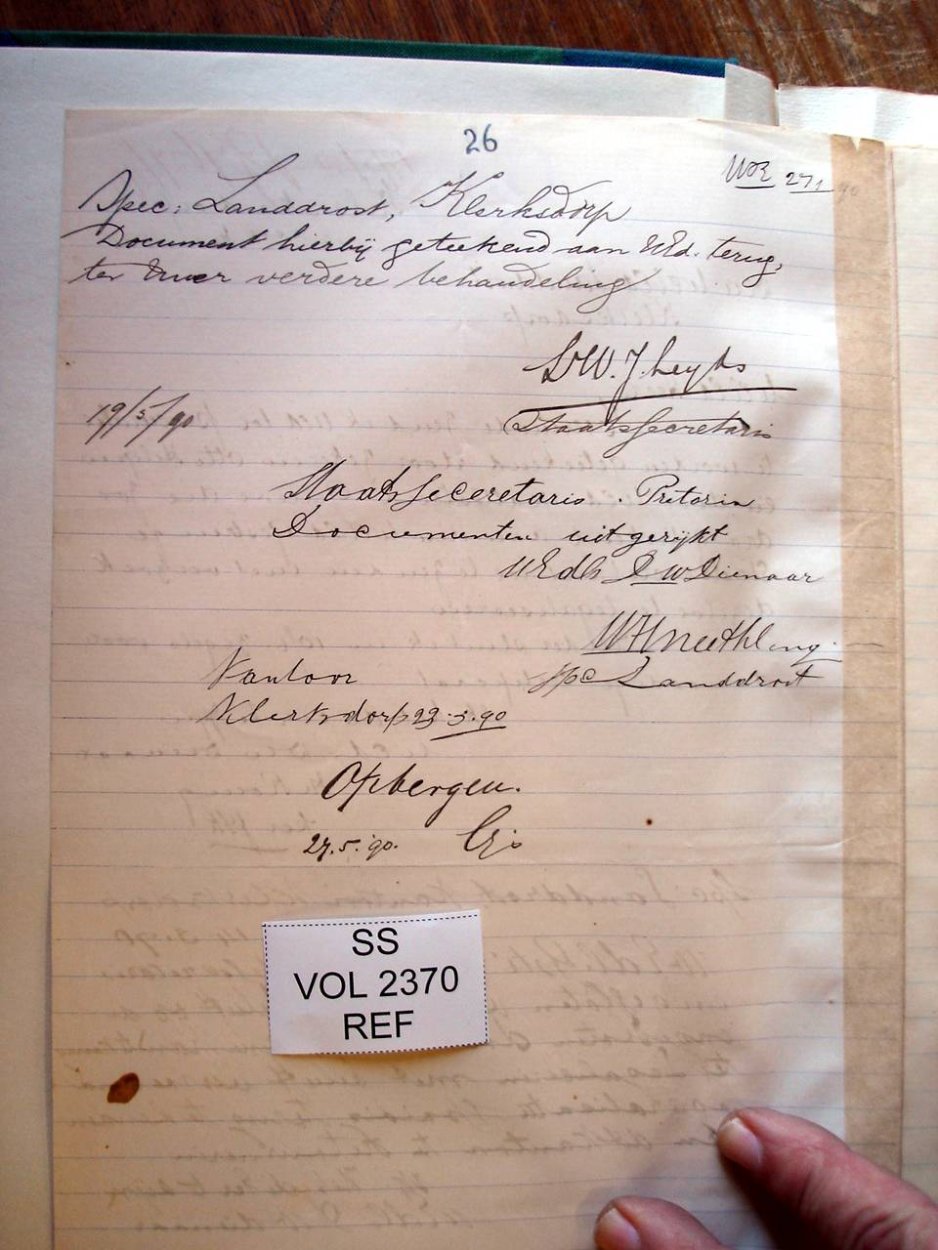 26
Spec: Landdrost, Klerksdorp
Document hierbij geteekend aan UEd. terug,
ter verdere behandeling
Dr W. J. Leyds
Staatssecretaris
19/5/90
Staats Seceretaris. Pretoria
Documenten uitgerijkt
UEdls Dw Dienaar
WHNeethling
Spc Landdrost
Kantoor
Klerksdorp 23.5.90
Opbergen.
27.5.90.
SS
VOL 2370
REF